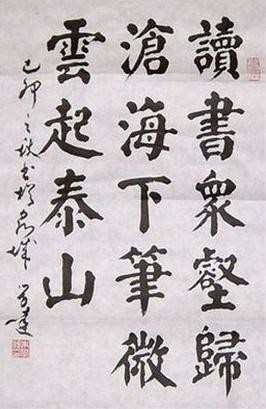 讀書眾壑歸
滄海下筆微
雲起泰山
己卯之秋書於